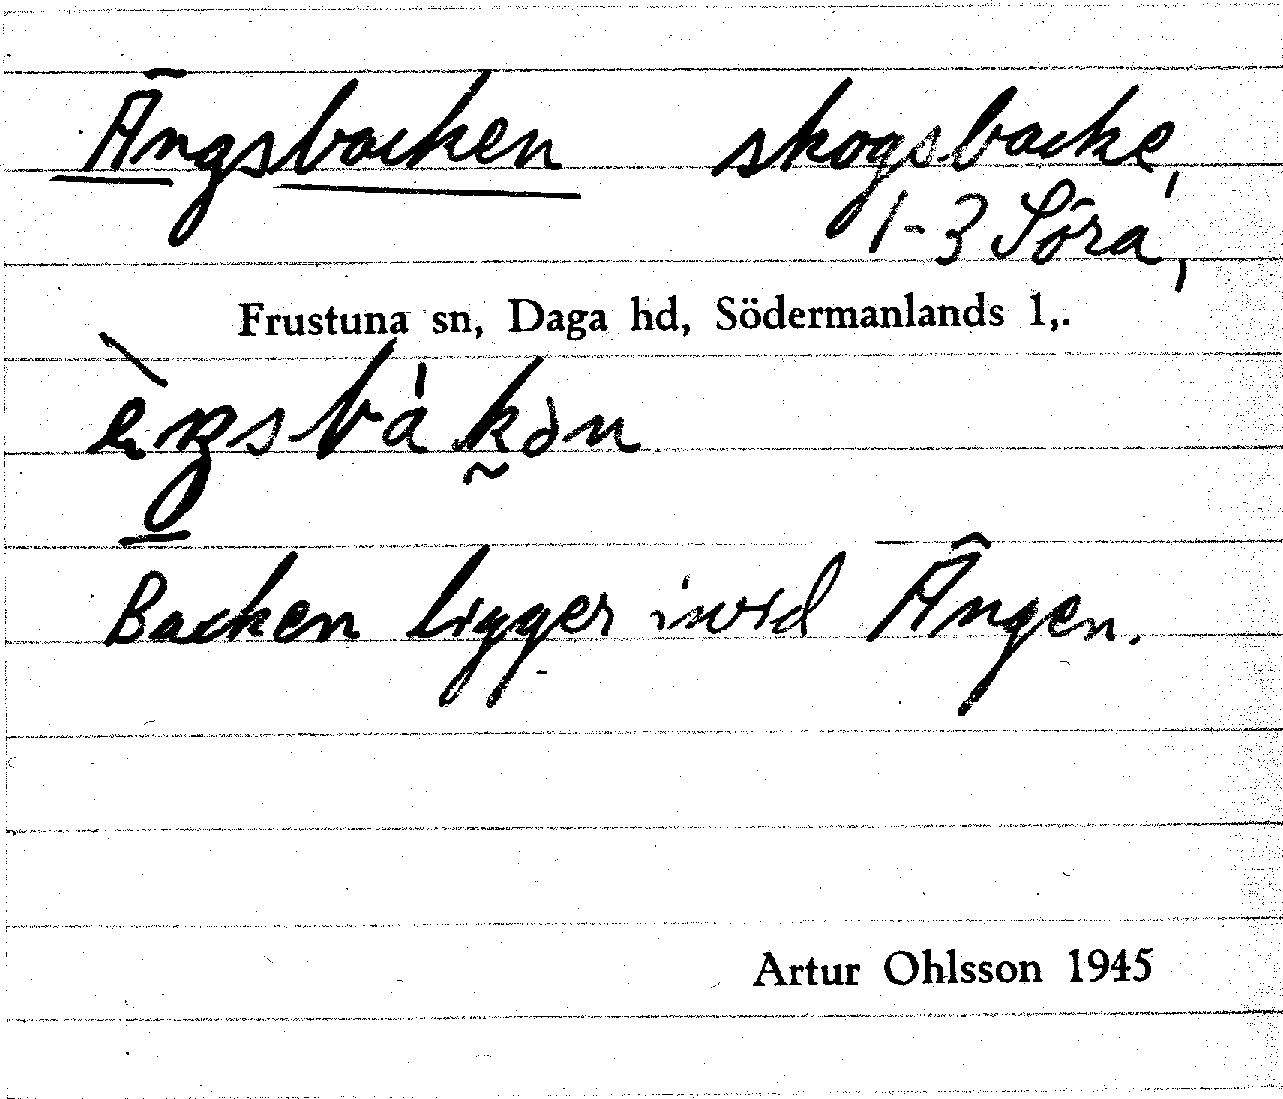 Ängsbacken skogsbacke,
1-3 Söra,
Frustuna sn, Daga hd, Södermanlands l,.
Backen ligger invid Ängen.
Artur Ohlsson 1945